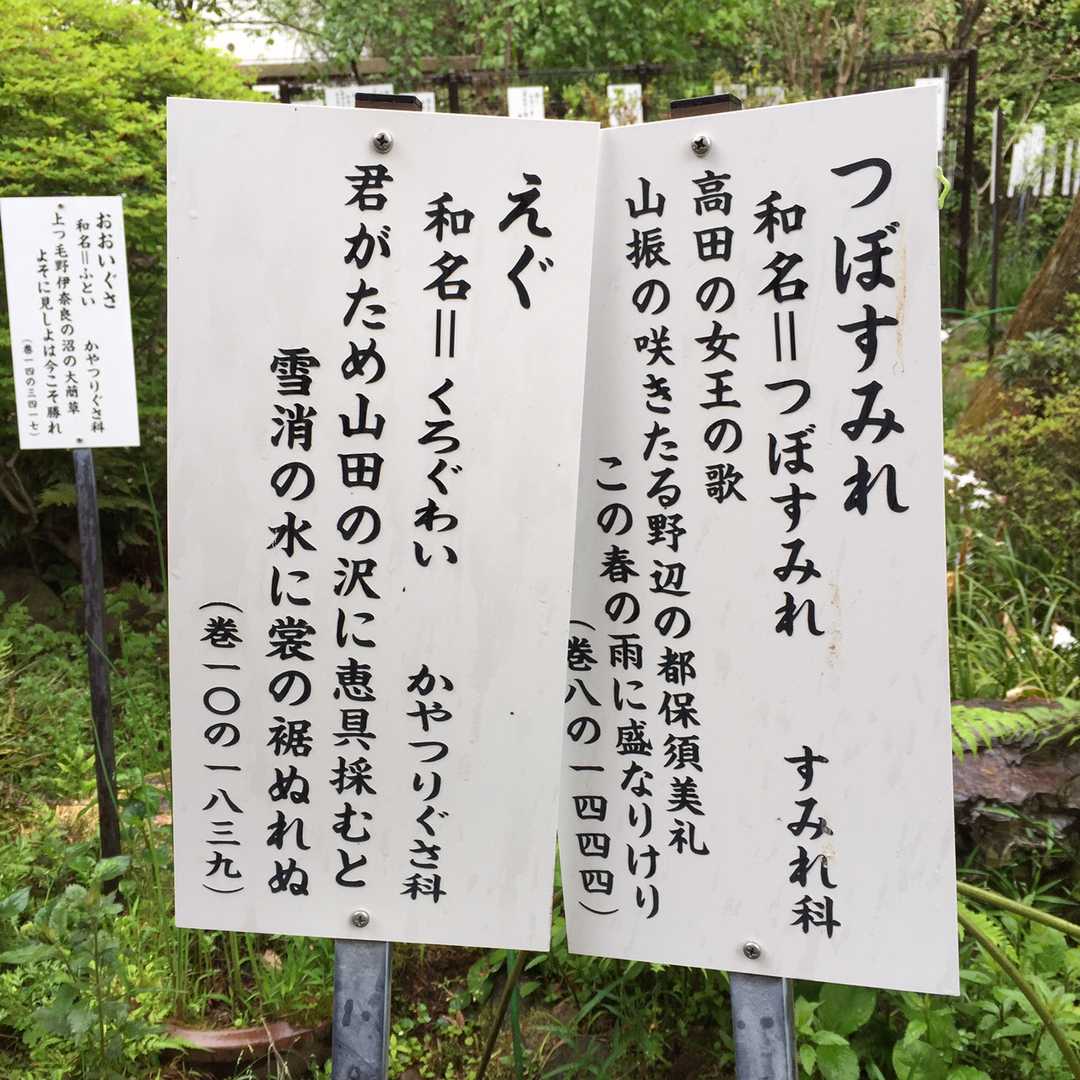 つぼすみれ
和名＝つぼすみれ　すみれ科
高田の女王の歌
山振の咲きたる野辺の都保須美礼
この春の雨に盛なりけり
（巻八の一四四四）
えぐ
和名＝くろぐわい　かやつりぐさ科
君がため山田の沢に恵具採むと
雪消の水に裳の裾ぬれぬ
（巻一〇の一八三九）
おおいぐさ
和名＝ふとい　かやつりぐさ科
上つ毛野伊奈良の沼の大藺草
よそに見しよは今こそ勝れ
（巻一四の三四一七）